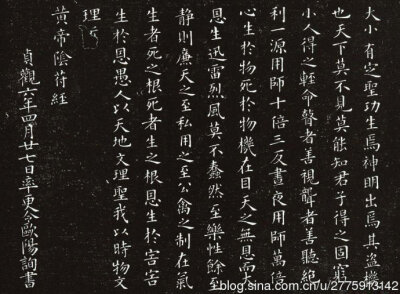 大小有定聖功生焉神明出焉其盗機
也天下莫不見莫能知君子得之固窮
小人得之輕命瞽者善視聾者善聽絕
利一源用師十倍三反晝夜用師萬倍
心生於物死於物機在目天之無恩而大
恩生迅雷烈風莫不蠢然至樂性餘至
静則廉天之至私用之至公禽之制在氣
生者死之根死者生之根恩生於害害
生於恩愚人以天地文理聖我以時物文
理
黃帝陰符經
貞觀六年四月廿七日率更令歐陽詢書
blog.sina.com.cn/u/2775913142